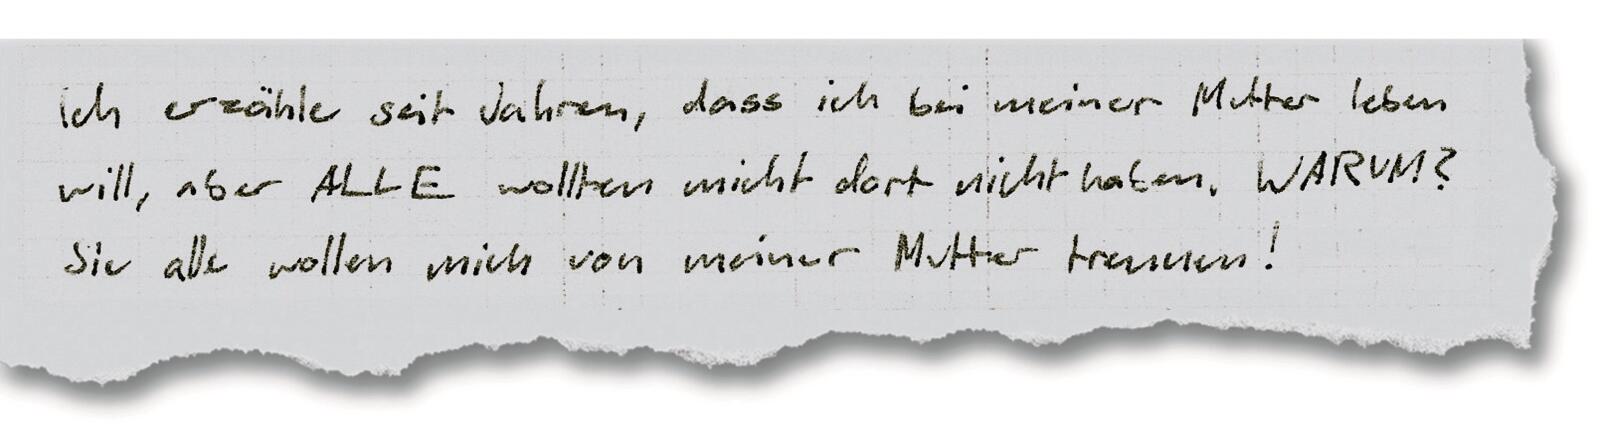 Ich erzähle seit Jahren, dass ich bei meiner Mutter leben
will, aber ALLE wollten micht dort nicht haben. WARUM?
Sie alle wollen mich von meiner Mutter trennen!